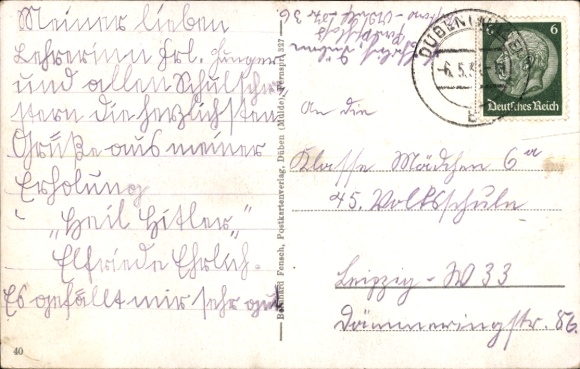 Meiner lieben
Lehrerin Frl. Junger
und allen Schulschwe
stern die herzlichsten
Grüße aus meiner
Erholung
"Heil Hitler"
Elfriede Ehrlich.
Es gefällt mir sehr gut
40
Bernhard Fensch, Postkartenverlag, Düben (Mulde), Fernspr. 327
DÜBEN (MULDE)
-6.5.
6
Deutsches Reich
An die
Klasse Mädchen 6a
45. Volksschule
Leipzig - W 33
Dämmeringstr. 86.